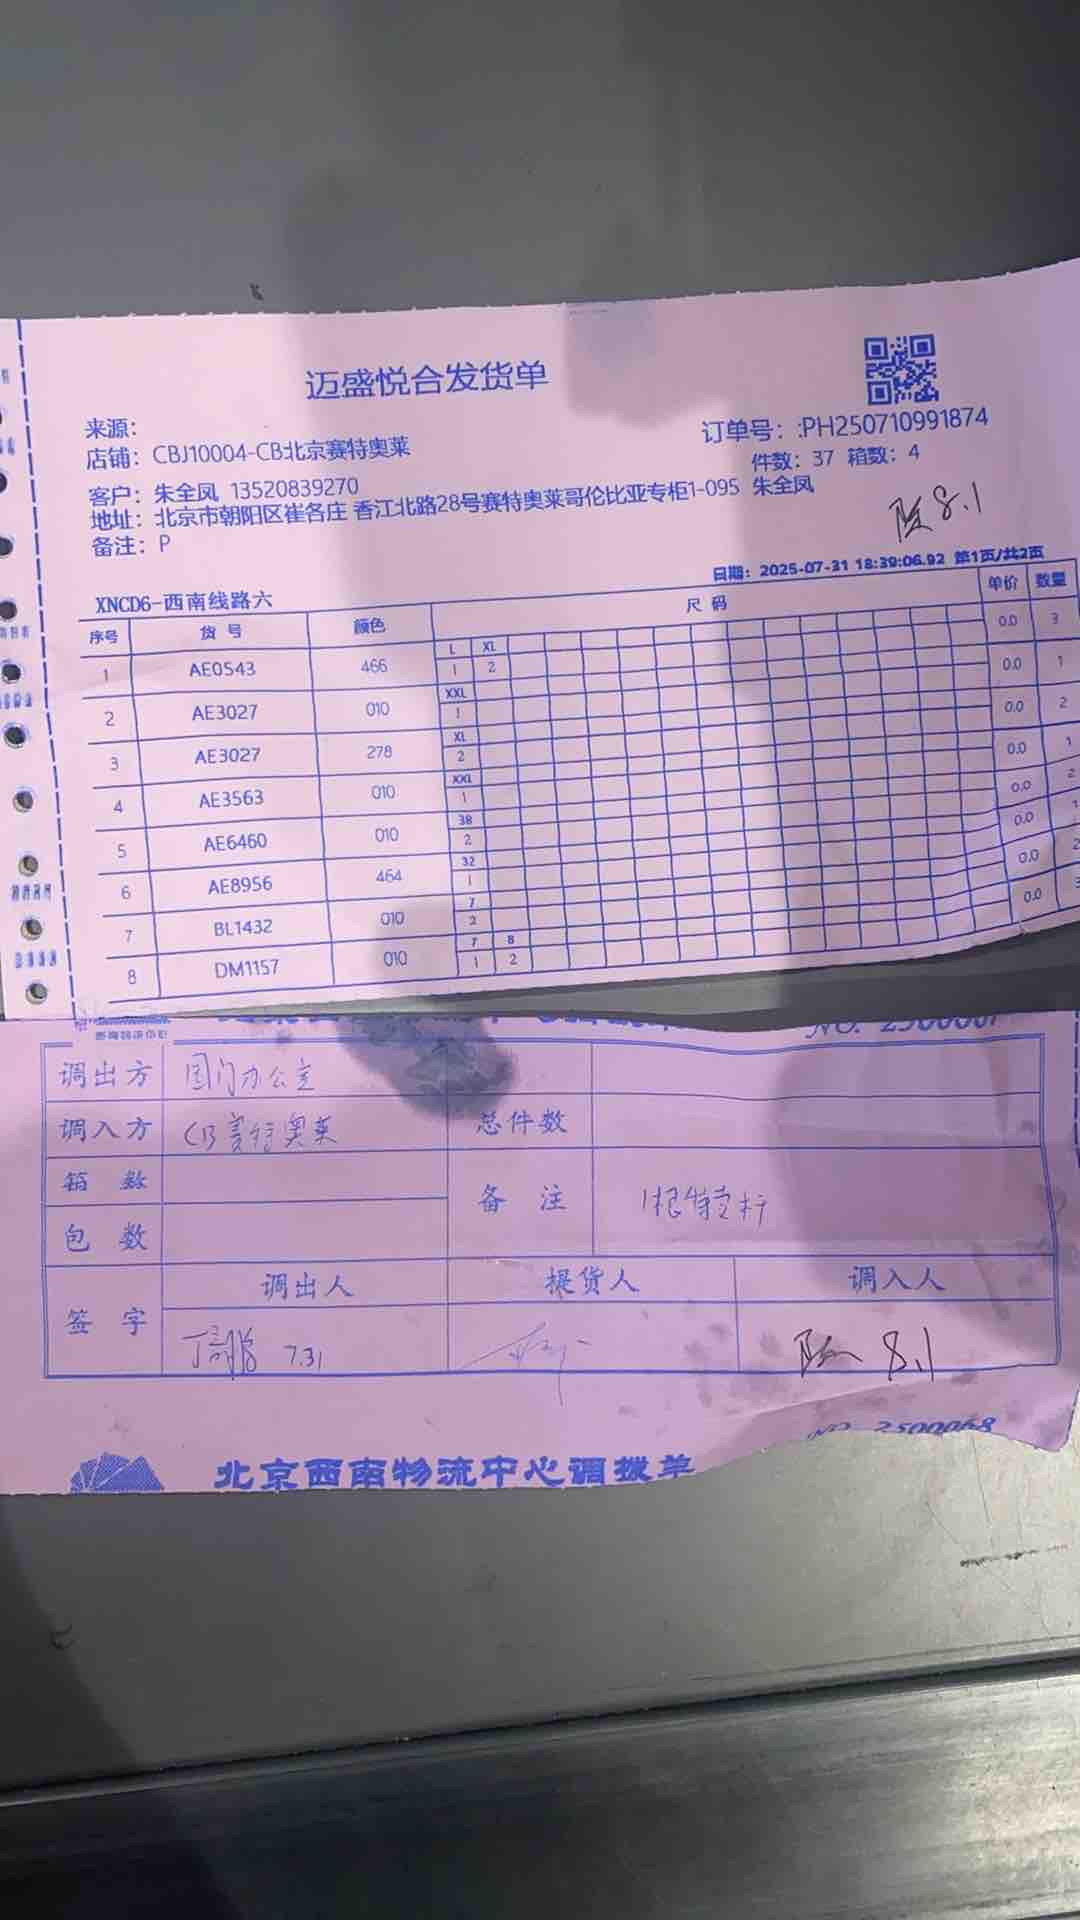 迈盛悦合发货单
来源：
订单号：:PH250710991874
店铺：CBJ10004-CB北京赛特奥莱
件数：37 箱数：4
客户：朱全凤 13520839270
地址：北京市朝阳区崔各庄 香江北路28号赛特奥莱哥伦比亚专柜1-095 朱全凤
8.1
备注：P
日期：2025-07-31 18:39:06.92 第1页/共2页
XNCD6-西南线路六
序号 货号 颜色 尺码 单价 数量
L XL
1 AE0543 466 1 2 0.0 3
XXL
2 AE3027 010 1 0.0 1
XL
3 AE3027 278 2 0.0 2
XXL
4 AE3563 010 1 0.0 1
38
5 AE6460 010 2 0.0 2
32
6 AE8956 464 1 0.0 1
7
7 BL1432 010 2 0.0 2
7 8
8 DM1157 010 1 2 0.0 3
调出方 国门办公室
调入方 CB赛特奥莱 总件数
箱数
备注 1根特支杆
包数
签字 调出人 提货人 调入人
7.31 8.1
NO. 2500068
北京西南物流中心调拨单